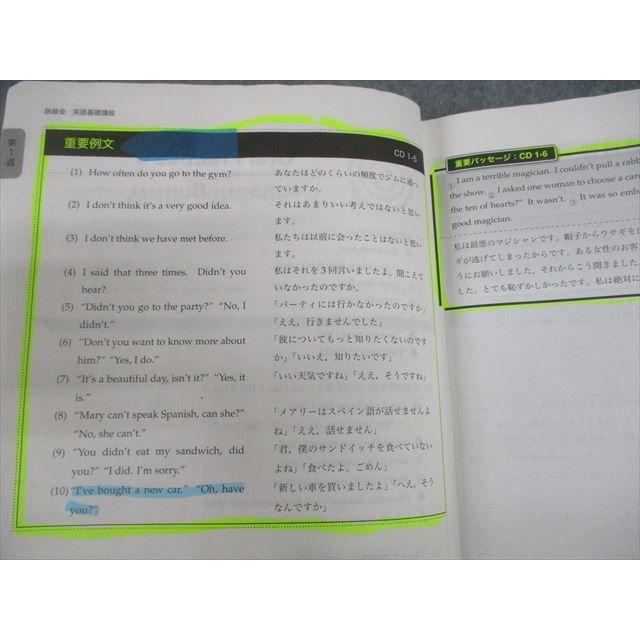 鉄緑会 英語基礎講座
第1週
重要例文
CD 1-5
(1) How often do you go to the gym?
あなたはどのくらいの頻度でジムに通っ
ていますか。
(2) I don't think it's a very good idea.
それはあまりいい考えではないと思い
ます。
(3) I don't think we have met before.
私たちは以前に会ったことはないと思い
ます。
(4) I said that three times. Didn't you
hear?
私はそれを3回言いましたよ。聞こえて
いなかったのですか。
(5) "Didn't you go to the party?" "No, I
didn't."
「パーティには行かなかったのですか」
「ええ，行きませんでした」
(6) "Don't you want to know more about
him?" "Yes, I do."
「彼についてもっと知りたくないのです
か」「いいえ，知りたいです」
(7) "It's a beautiful day, isn't it?" "Yes, it
is."
「いい天気ですね」「ええ，そうですね」
(8) "Mary can't speak Spanish, can she?"
"No, she can't."
「メアリーはスペイン語が話せませんよ
ね」「ええ，話せません」
(9) "You didn't eat my sandwich, did
you?" "I did. I'm sorry."
「君，僕のサンドイッチを食べていない
よね」「食べたよ。ごめん」
(10) "I've bought a new car." "Oh, have
you?"
「新しい車を買いましたよ」「へえ，そう
なんですか」
重要パッセージ：CD 1-6
① I am a terrible magician. I couldn't pull a rabb
the show. ② I asked one woman to choose a car
the ten of hearts?" It wasn't. ③ It was so emb
good magician.
私は最悪のマジシャンです。帽子からウサギを
ギが逃げてしまったからです。ある女性のお客
うにお願いしました。それからこう聞きました
した。とても恥ずかしかったです。私は絶対に